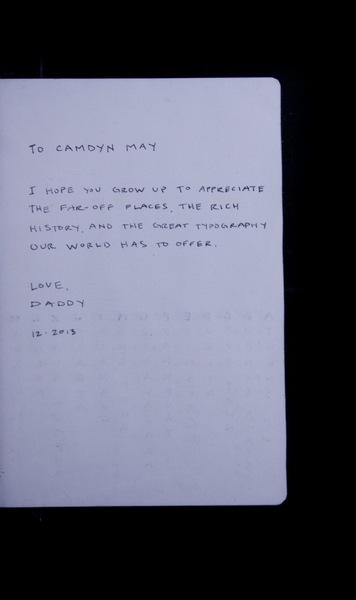 TO CAMDYN MAY
I HOPE YOU GROW UP TO APPRECIATE
THE FAR-OFF PLACES, THE RICH
HISTORY, AND THE GREAT TYPOGRAPHY
OUR WORLD HAS TO OFFER.
LOVE,
DADDY
12.2013